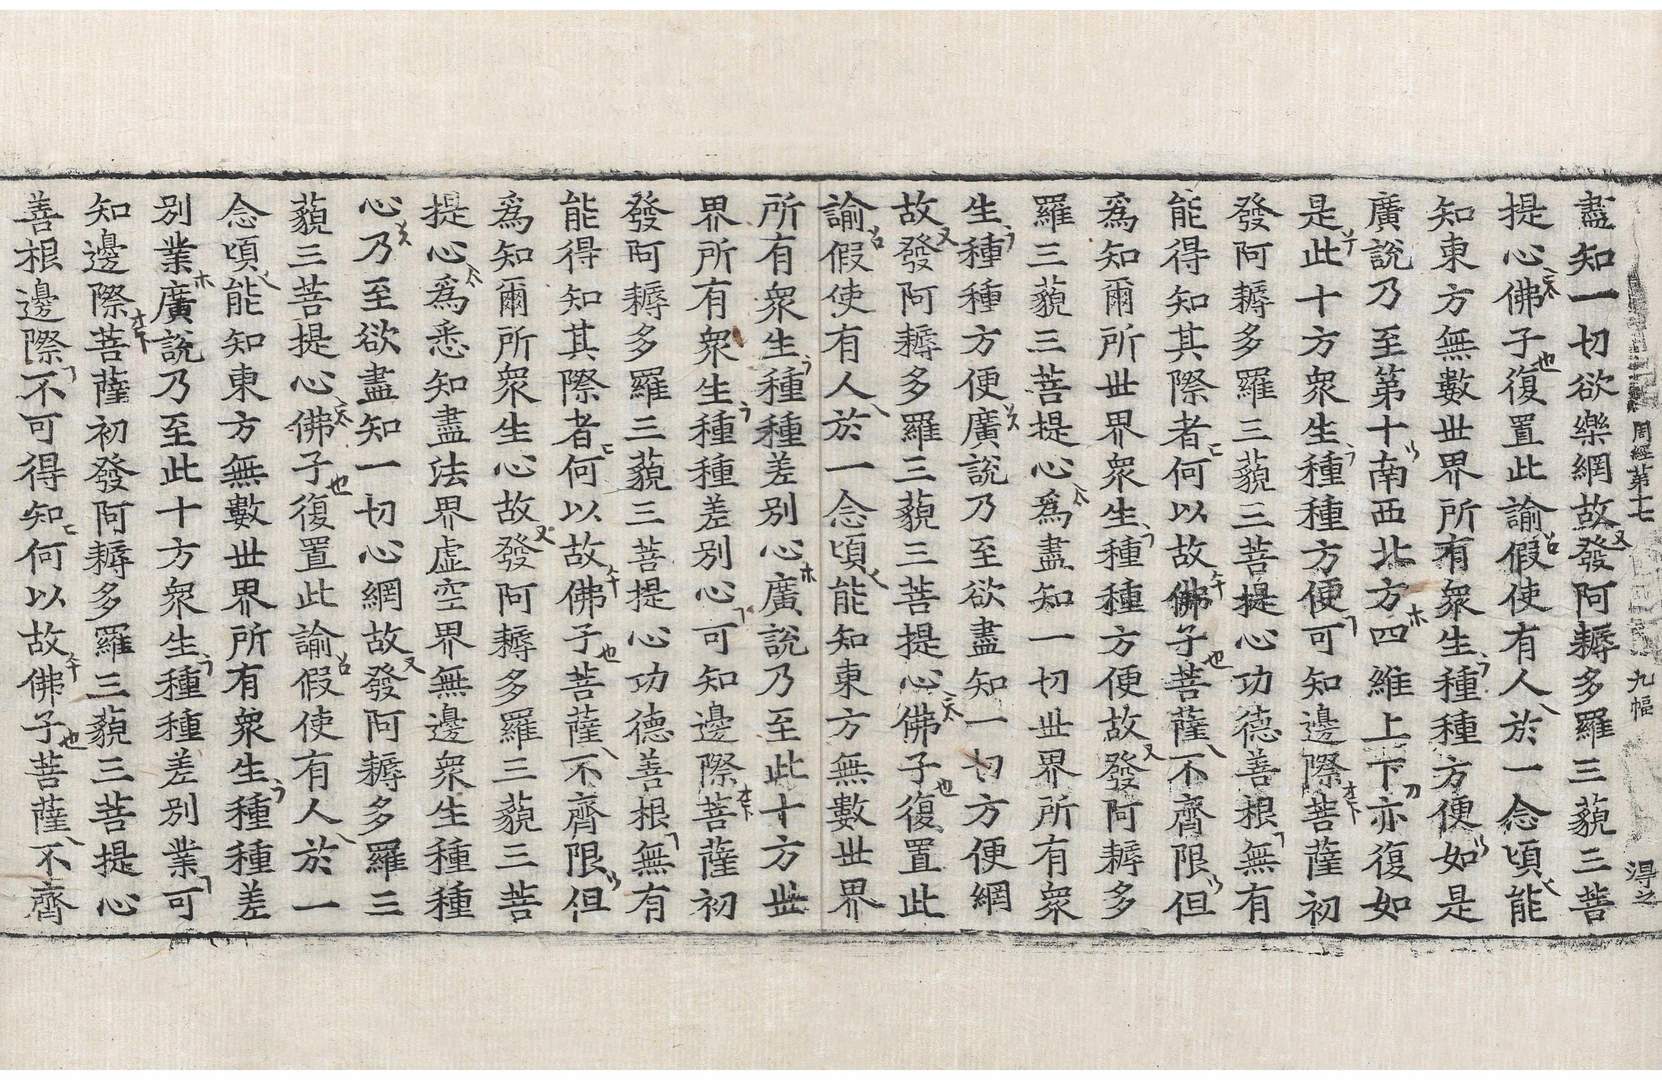 周經第十七 九幅
盡知一切欲樂網故發阿耨多羅三藐三菩
提心佛子復置此諭假使有人於一念頃能
知東方無數世界所有衆生種種方便如是
廣說乃至第十南西北方四維上下亦復如
是此十方衆生種種方便可知邊際菩薩初
發阿耨多羅三藐三菩提心功德善根無有
能得知其際者何以故佛子菩薩不齊限但
爲知爾所世界衆生種種方便故發阿耨多
羅三藐三菩提心爲盡知一切世界所有衆
生種種方便廣說乃至欲盡知一切方便網
故發阿耨多羅三藐三菩提心佛子復置此
諭假使有人於一念頃能知東方無數世界
所有衆生種種差别心廣說乃至此十方世
界所有衆生種種差别心可知邊際菩薩初
發阿耨多羅三藐三菩提心功德善根無有
能得知其際者何以故佛子菩薩不齊限但
爲知爾所衆生心故發阿耨多羅三藐三菩
提心爲悉知盡法界虚空界無邊衆生種種
心乃至欲盡知一切心網故發阿耨多羅三
藐三菩提心佛子復置此諭假使有人於一
念頃能知東方無數世界所有衆生種種差
别業廣說乃至此十方衆生種種差别業可
知邊際菩薩初發阿耨多羅三藐三菩提心
善根邊際不可得知何以故佛子菩薩不齊